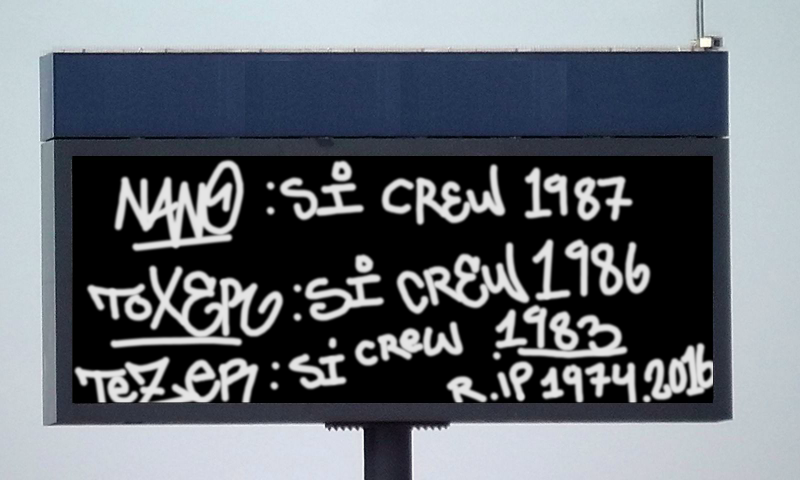 NANO : Si CREW 1987
ToXER : Si CREW 1986
TeZER : Si CREW 1983
R.iP 1974.2016